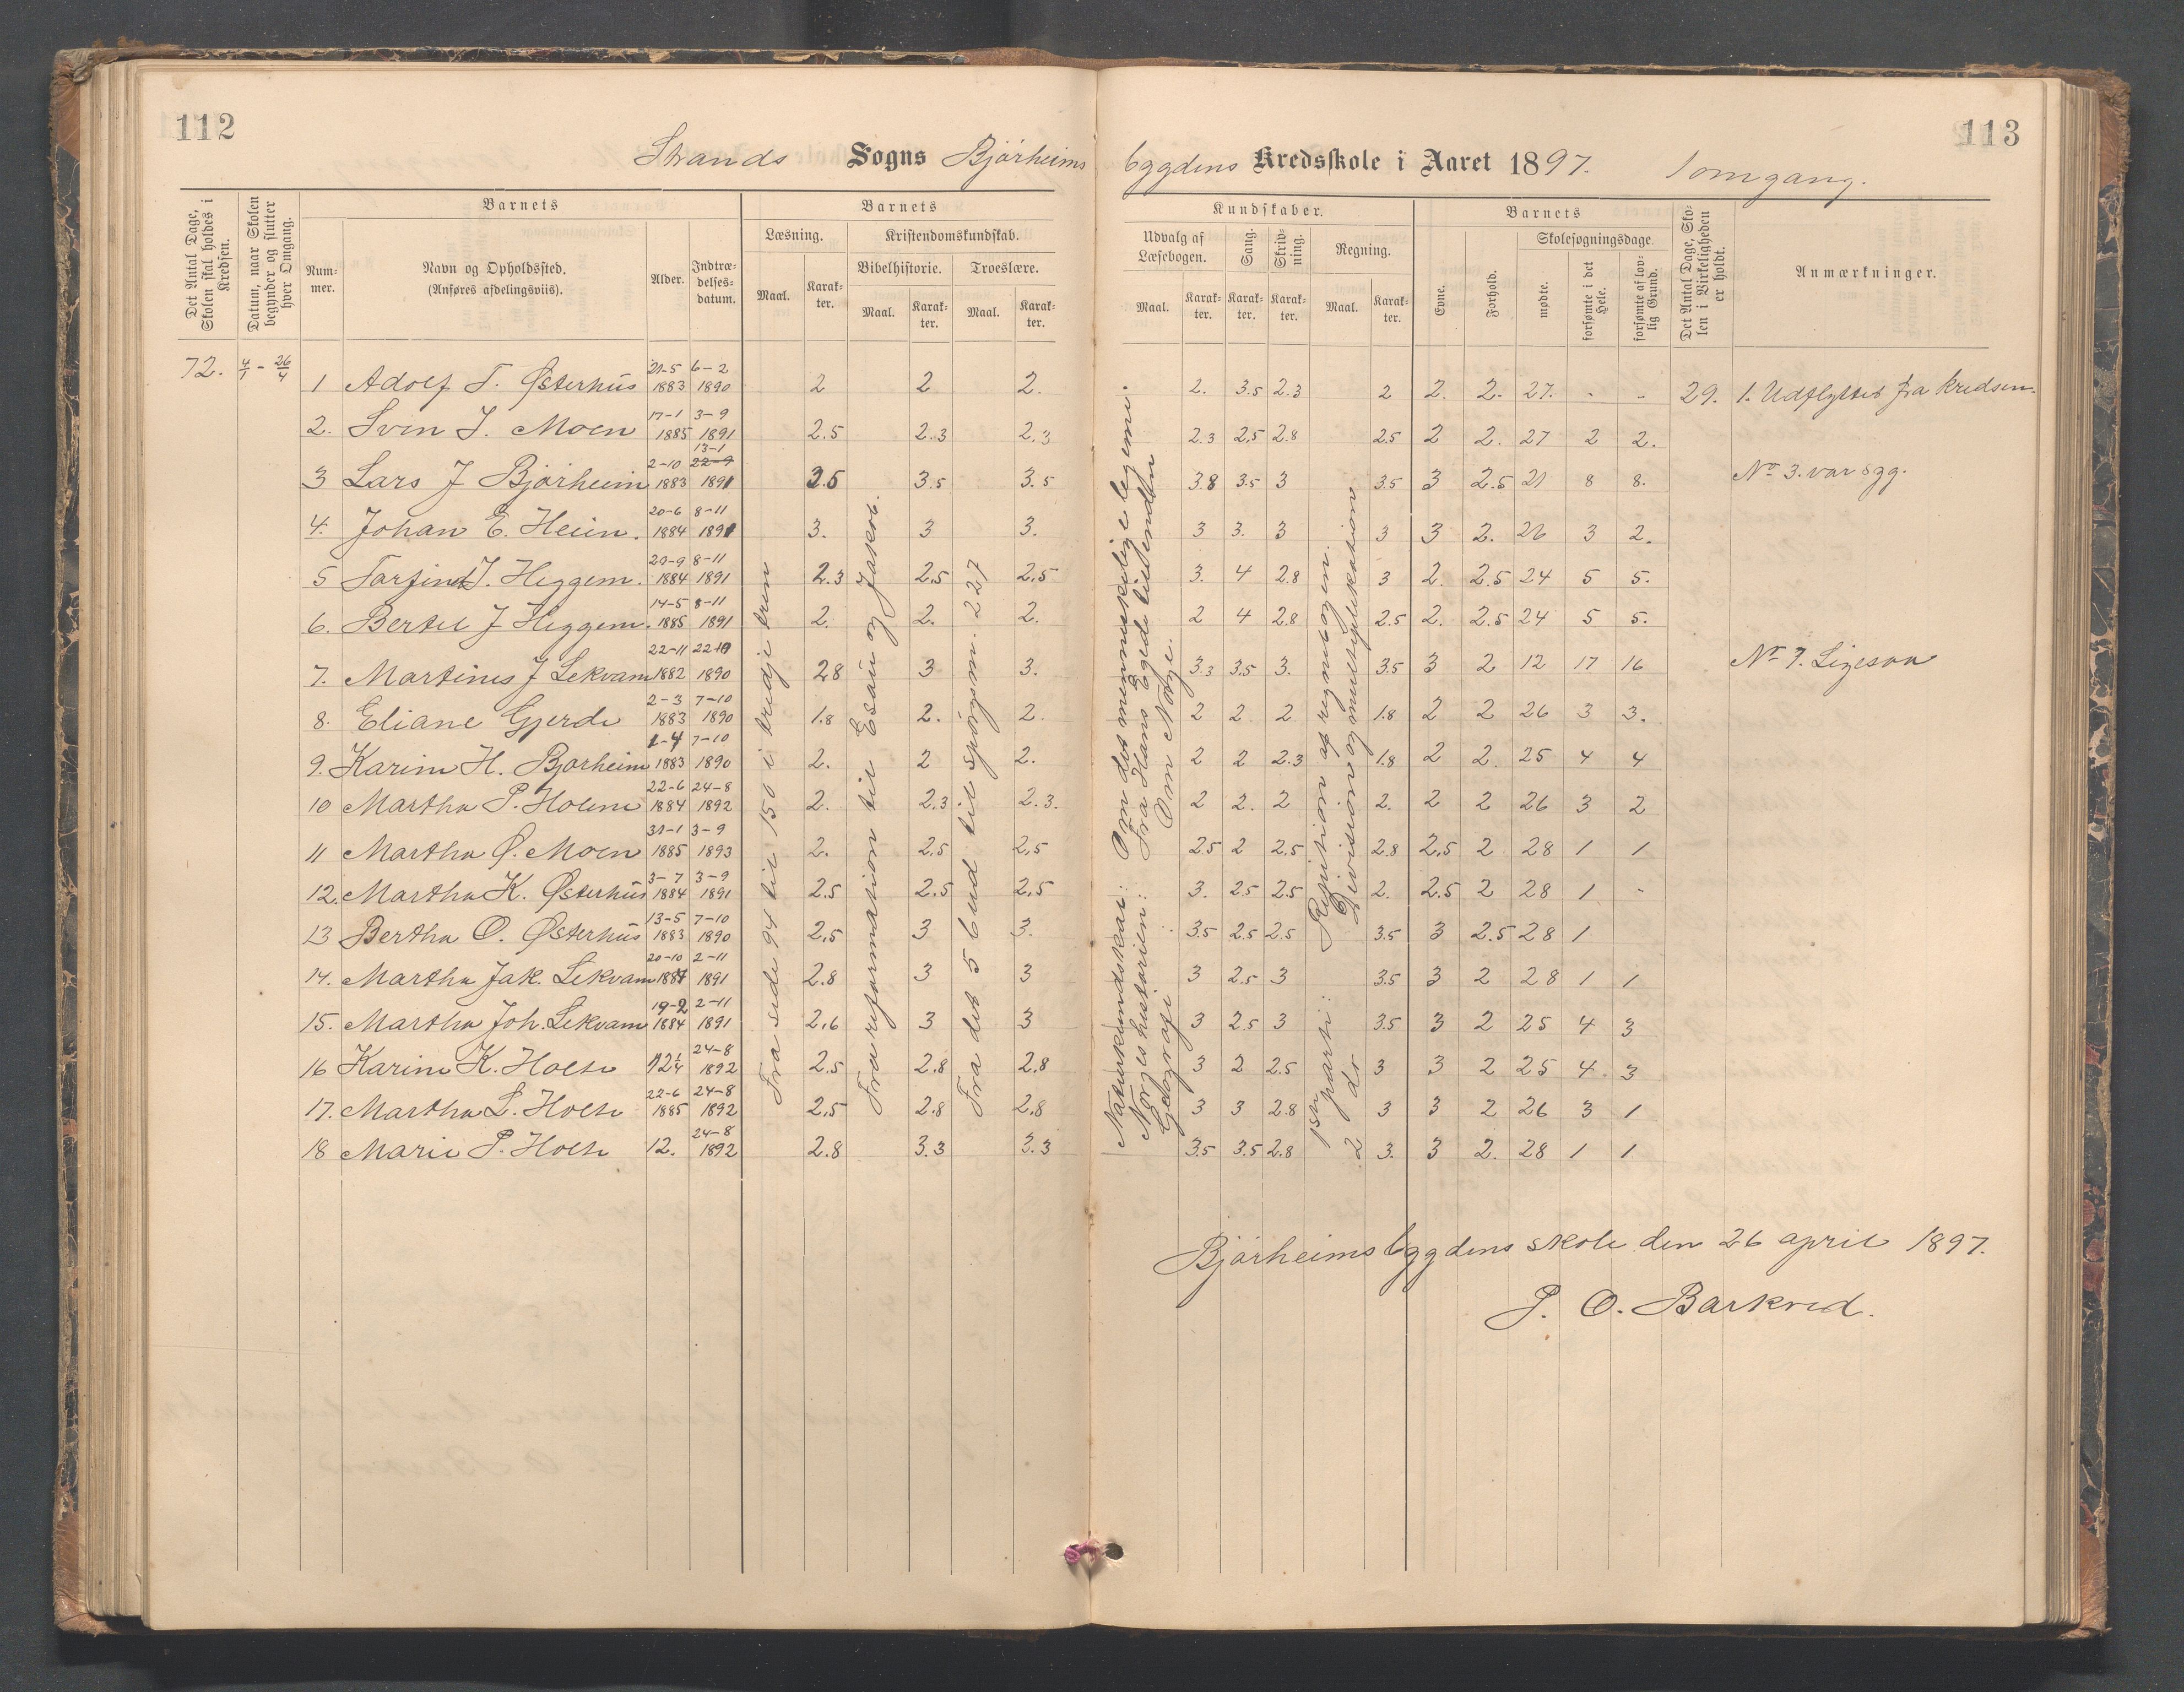 112
113
Strands Sogns Bjørheims bygdens Kredsskole i Aaret 1897. 1 omgang.
Det Antal Dage, Skolen skal holdes i Kredsen.
Datum, naar Skolen begynder og slutter hver Omgang.
Barnets
Nummer.
Navn og Opholdssted. (Anføres afdelingsviis).
Alder.
Indtrædelsesdatum.
Barnets
Læsning.
Maal.
Karakter.
Kristendomskundskab.
Bibelhistorie.
Maal.
Karakter.
Troeslære.
Maal.
Karakter.
Kundskaber.
Udvalg af Læsebogen.
Maal.
Karakter.
Sang.
Karakter.
Skrivning.
Karakter.
Regning.
Maal.
Karakter.
Barnets
Evne.
Forhold.
Skolesøgningsdage
mødte.
forsømte i det Hele.
forsømte af lovlig Grund.
Det Antal Dage, Skolen i Virkeligheden er holdt.
Anmærkninger.
72. 4/1 - 26/4
1 Adolf T. Østerhus 21-5 1883 6-2 1890 2 2 2. 2. 3.5 2.3 2 2. 2. 27. - - 29. 1. Udflyttet fra kredsen.
2. Sven J. Moen 17-1 1885 3-9 1891 2.5 2.3 2.3 2.3 2.5 2.8 2.5 2 2. 27 2 2.
3 Lars J Bjørheim 2-10 1883 13-1 22-9 1891 3.5 3.5 3.5 3.8 3.5 3 3.5 3 2.5 21 8 8. No 3. var syg.
4. Johan E. Heien. 20-6 1884 8-11 1891 3. 3 3. 3 3. 3 3 3 2. 26 3 2.
5 Torfind J. Heggem. 29-9 1884 8-11 1891 2.3 2.5 2.5 3. 4 2.8 3 2. 2.5 24 5 5.
6. Bertel J Heggem. 14-5 1885 8-11 1891 2. 2. 2. 2 4 2.8 2.5 2. 2.5 24 5 5.
7. Martines J Lekvam 22-11 1882 22-10 1890 2.8 3 3. 3.3 3.5 3. 3.5 3 2 12 17 16 No 7. Ligesaa
8. Eliane Gjerde 2-3 1883 7-10 1890 1.8 2. 2. 2 2 2 1.8 2 2 26 3 3.
9. Karine H. Bjørheim 1-4 1883 7-10 1890 2. 2 2. 2 2 2.3 1.8 2 2 25 4 4
10 Martha P. Holene 22-6 1884 24-8 1892 2. 2.3. 2.3. 2 2. 2 2. 2 2 26 3 2
11 Martha Ø. Moen 31-1 1885 3-9 1893 2. 2.5 2.5 2.5 2 2.5 2.8 2.5 2 28 1 1
12. Martha K. Østerhus 3-7 1884 3-9 1891 2.5 2.5 2.5 3. 2.5 2.5 2. 2.5 2 28 1 -
13 Bertha O. Østerhus 13-5 1883 7-10 1890 2.5 3 3. 3.5 2.5 2.5 3.5 3 2.5 28 1
14. Martha Jak. Lekvam 20-10 1884 2-11 1891 2.8 3 3 3 2.5 3 3.5 3 2 28 1 1
15. Martha Joh. Lekvam 19-2 1884 2-11 1891 2.6 3 3 3 2.5 3 3.5 3 2 25 4 3
16 Karine K. Holte 12 1/4 24-8 1892 2.5 2.8 2.8 3 2 2.5 3 3 2 25 4. 3
17. Martha L. Holte 22-6 1885 24-8 1892 2.5 2.8 2.8 3 3 2.8 3 3 2 26 3 1
18 Marie P. Holte 12. 24-8 1892 2.8 3.3 3.3 3.5 3.5 2.8 3. 3 2. 28 1 1
Fra side 94 til 150 i tredje trin
Fra reformation til Esau og Jakob.
Fra det 5 bud til spørgsm. 227
Naturkundskab: Om det menneskelige legeme.
Norges historien: Fra Hans Egede til enden
Geografi Om Norge.
1ste parti: Repetition af regnebogen.
2 do Division og multiplikation
Bjørheimsbygdens skole den 26 april 1897.
P. O. Barkved.